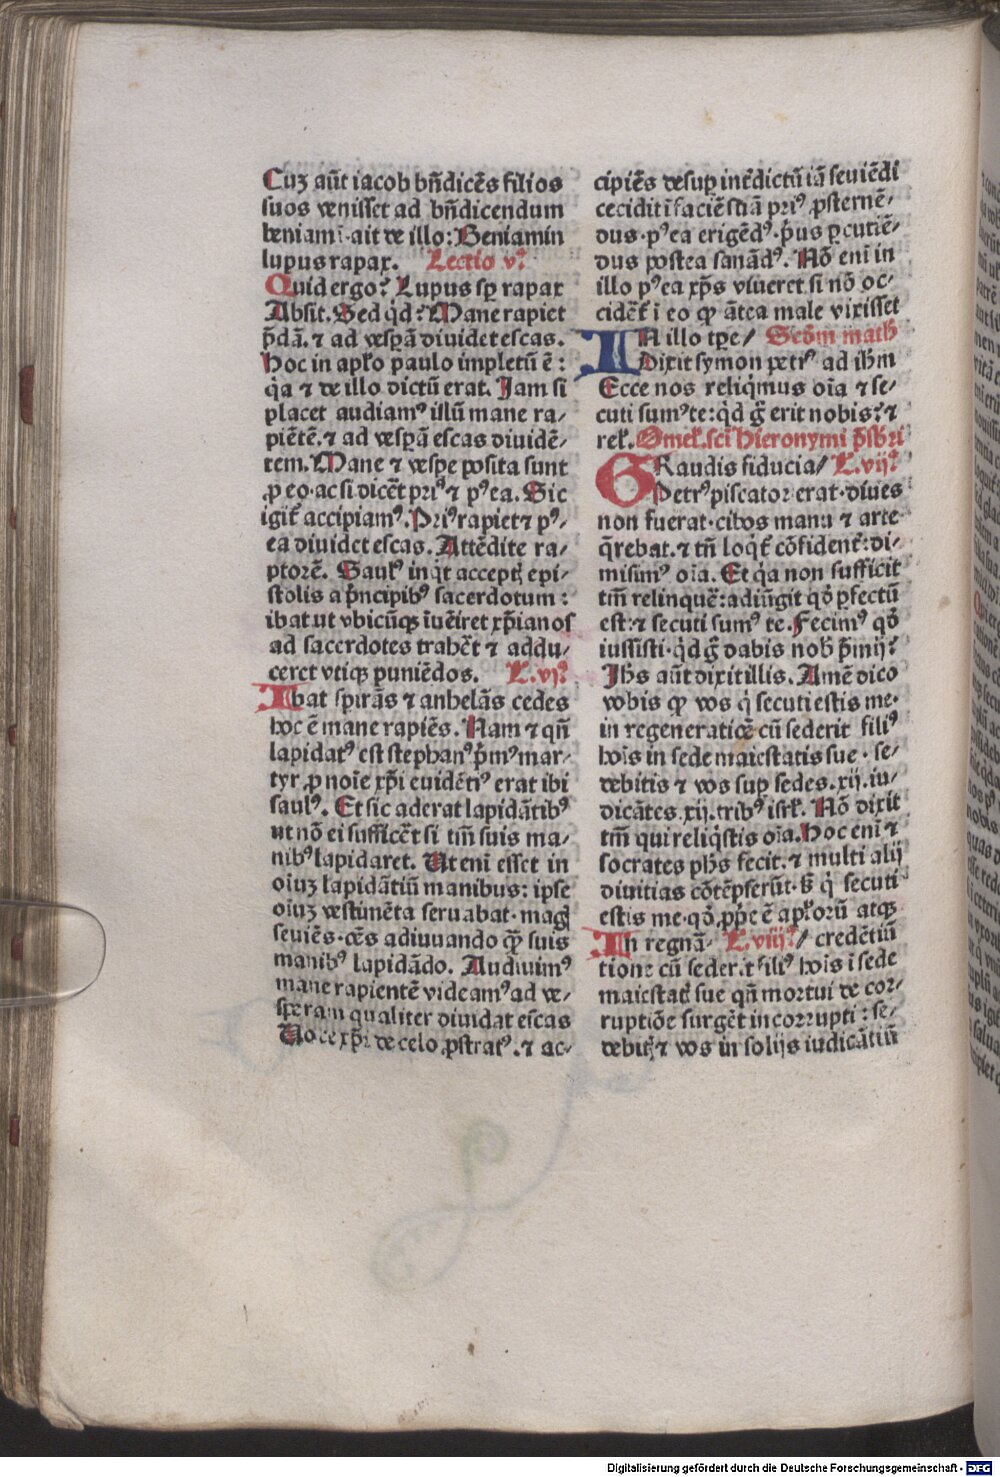 Cuʒ aūt iacob bn̄dicēs filios
suos venisset ad bn̄dicendum
beniami·ait de illo: Beniamin
lupus rapax. Lectio v⁹
Quid ergo? Lupus sꝑ rapax
Absit. Sed qͥd? Mane rapiet
p̄dā. ⁊ ad vesꝑā diuidet escas.
Hoc in apl̄o paulo impletū ē:
qͥa ⁊ de illo dictū erat. Jam si
placet audiam⁹ illū mane ra⸗
piētē. ⁊ ad vesꝑā escas diuidē⸗
tem. Mane ⁊ vesꝑe posita sunt
ꝓ eo·ac si dicēt pri⁹ ⁊ p⁹ea. Sic
igit̄ accipiam⁹. Pri⁹ rapiet ⁊ p⁹⸗
ea diuidet escas. Attēdite ra⸗
ptorē. Saul⁹ inqͥt acceptꝭ epi⸗
stolis a pͥncipib⁹ sacerdotum:
ibat ut vbicūqꝫ īuēiret xp̄ianos
ad sacerdotes trahēt ⁊ addu⸗
ceret vtiqꝫ puniēdos. L. vj⁹
Ibat spirās ⁊ anhelās cedes
hoc ē mane rapiēs. Nam ⁊ qn̄
lapidat⁹ est stephan⁹ pͥm⁹ mar⸗
tyr ꝓ noīe xp̄i euidēti⁹ erat ibi
saul⁹. Et sic aderat lapidātib⁹
ut nō ei sufficēt si tm̄ suis ma⸗
nib⁹ lapidaret. Ut eni esset in
oīuʒ lapidātiū manibus: ipse
oīuʒ vestimēta seruabat·magꝭ
seuiēs·oēs adiuuando qͣꝫ suis
manib⁹ lapidādo. Audiuim⁹
mane rapientē videam⁹ ad ve⸗
speram qualiter diuidat escas
Uoce xp̄i de celo ꝓstrat⁹. ⁊ ac⸗
cipiēs desuꝑ int̄dictū iā seuiēdi
cecidit ī faciē suā pri⁹ ꝓsternē⸗
dus·p⁹ea erigēd⁹·pͥus ꝑcutiē⸗
dus postea sanād⁹. Nō eni in
illo p⁹ea xp̄s viueret si nō oc⸗
cidēt̄ ī eo ꝙ ātea male vixisset
IN illo tꝑe/ Scd̄m math̄
Dixit symon petr⁹ ad ih̄m
Ecce nos reliqͥmus oīa ⁊ se⸗
cuti sum⁹ te: qͥd g̊ erit nobis? ⁊
rel̄. Omel̄. sci Hieronymi p̄sb̄ri
GRandis fiducia/ L. vij⁹
Petr⁹ piscator erat·diues
non fuerat·cibos manu ⁊ arte
q̄rebat. ⁊ tn̄ loqͥt̄ cōfident̄: di⸗
misim⁹ oīa. Et qͥa non sufficit
tm̄ relinquē: adiūgit qd̄ ꝑfectū
est: ⁊ secuti sum⁹ te. Fecim⁹ qd̄
iussisti·qͥd g̊ dabis nob̄ p̄mij?
Jh̄s aūt dixit illis. Amē dico
vobis ꝙ vos qͥ secuti estis me·
in regeneratiōe cū sederit fili⁹
hoīs in sede maiestatis sue· se⸗
debitis ⁊ vos suꝑ sedes. xij. iu⸗
dicātes. xij. trib⁹ isrl̄. Nō dixit
tm̄ qui reliqͥstis oīa. Hoc eni ⁊
socrates ph̄s fecit. ⁊ multi alij
diuitias cōtēpserūt·sꝫ qͥ secuti
estis me·qd̄ ꝓpͥe ē apl̄orū atqꝫ
In regnā· L. viij⁹ / credētiū
tione cū sederit fili⁹ hoīs ī sede
maiestat̄ sue qn̄ mortui de cor⸗
ruptiōe surgēt incorrupti: se⸗
debitꝭ ⁊ vos in solijs iudicātiū
Digitalisierung gefördert durch die Deutsche Forschungsgemeinschaft - DFG